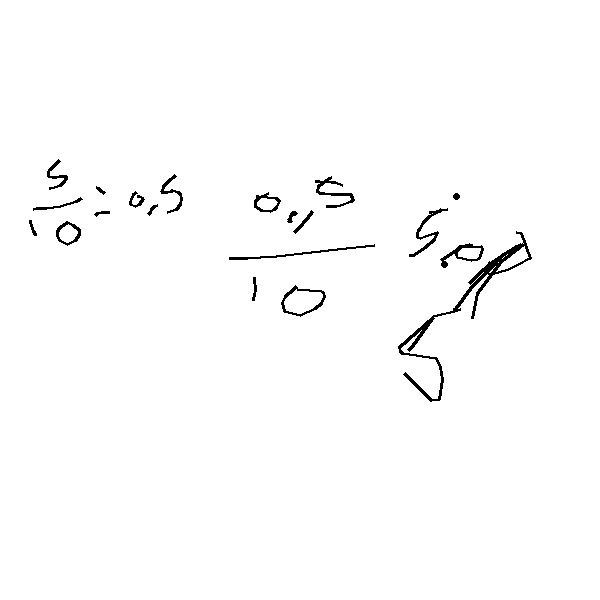 5/10 = 0,5
0,5/10
5,0
5